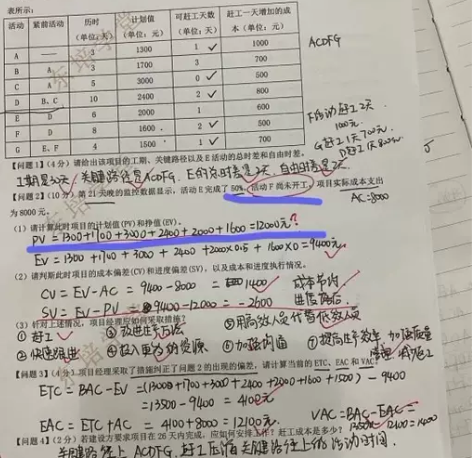 表所示:
活动 紧前活动 历时(单位:天) 计划值(单位:元) 可赶工天数(单位:天) 赶工一天增加的成本(单位:元)
A —— 3 1300 1 ✓ 1000
B A 3 1700 3 700
C A 5 3000 0 ✓ 500
D B、C 10 2400 2 ✓ 800
E D 6 2000 1 600
F D 8 1600 2 ✓ 500
G E、F 4 1500 1 ✓ 700
ACDFG
F活动赶工2天
1000元
G赶工1天700元
D赶工1天800元
【问题1】(4分)请给出该项目的工期、关键路径以及E活动的总时差和自由时差。
工期是30天 关键路径是ACDFG. E的总时差2天. 自由时差是2天
【问题2】(10分)第21天晚的监控数据显示,活动E完成了50%,活动F尚未开工,项目实际成本支出
为8000元。
AC=8000
(1)请计算此时项目的计划值(PV)和挣值(EV)。
PV=1300+1700+3000+2400+2000+1600=12000元?
EV=1300+1700+3000+2400+2000×0.5+1600×0=9400元
(2)请判断此时项目的成本偏差(CV)和进度偏差(SV),以及成本和进度执行情况。
CV=EV-AC=9400-8000=1400 成本节约
SV=EV-PV=9400-12000=-2600 进度落后
(3)针对上述情况,项目经理应如何采取措施?
① 赶工
② 快速跟进
④ 投入更多的资源
⑤ 用高效人员代替低效人员
⑥ 加强沟通
【问题3】(4分)项目经理采取了措施纠正了问题2的出现的偏差,请计算当前的ETC、EAC和VAC
ETC=BAC-EV=(1300+1700+3000+2400+2000+1600+1500)-9400
=13500-9400=4100元
EAC=ETC+AC=4100+8000=12100元
VAC=BAC-EAC=
【问题4】(2分)若建设方要求项目在26天内完成,应如何安排赶工?赶工成本是多少?
关键路径上ACDFG